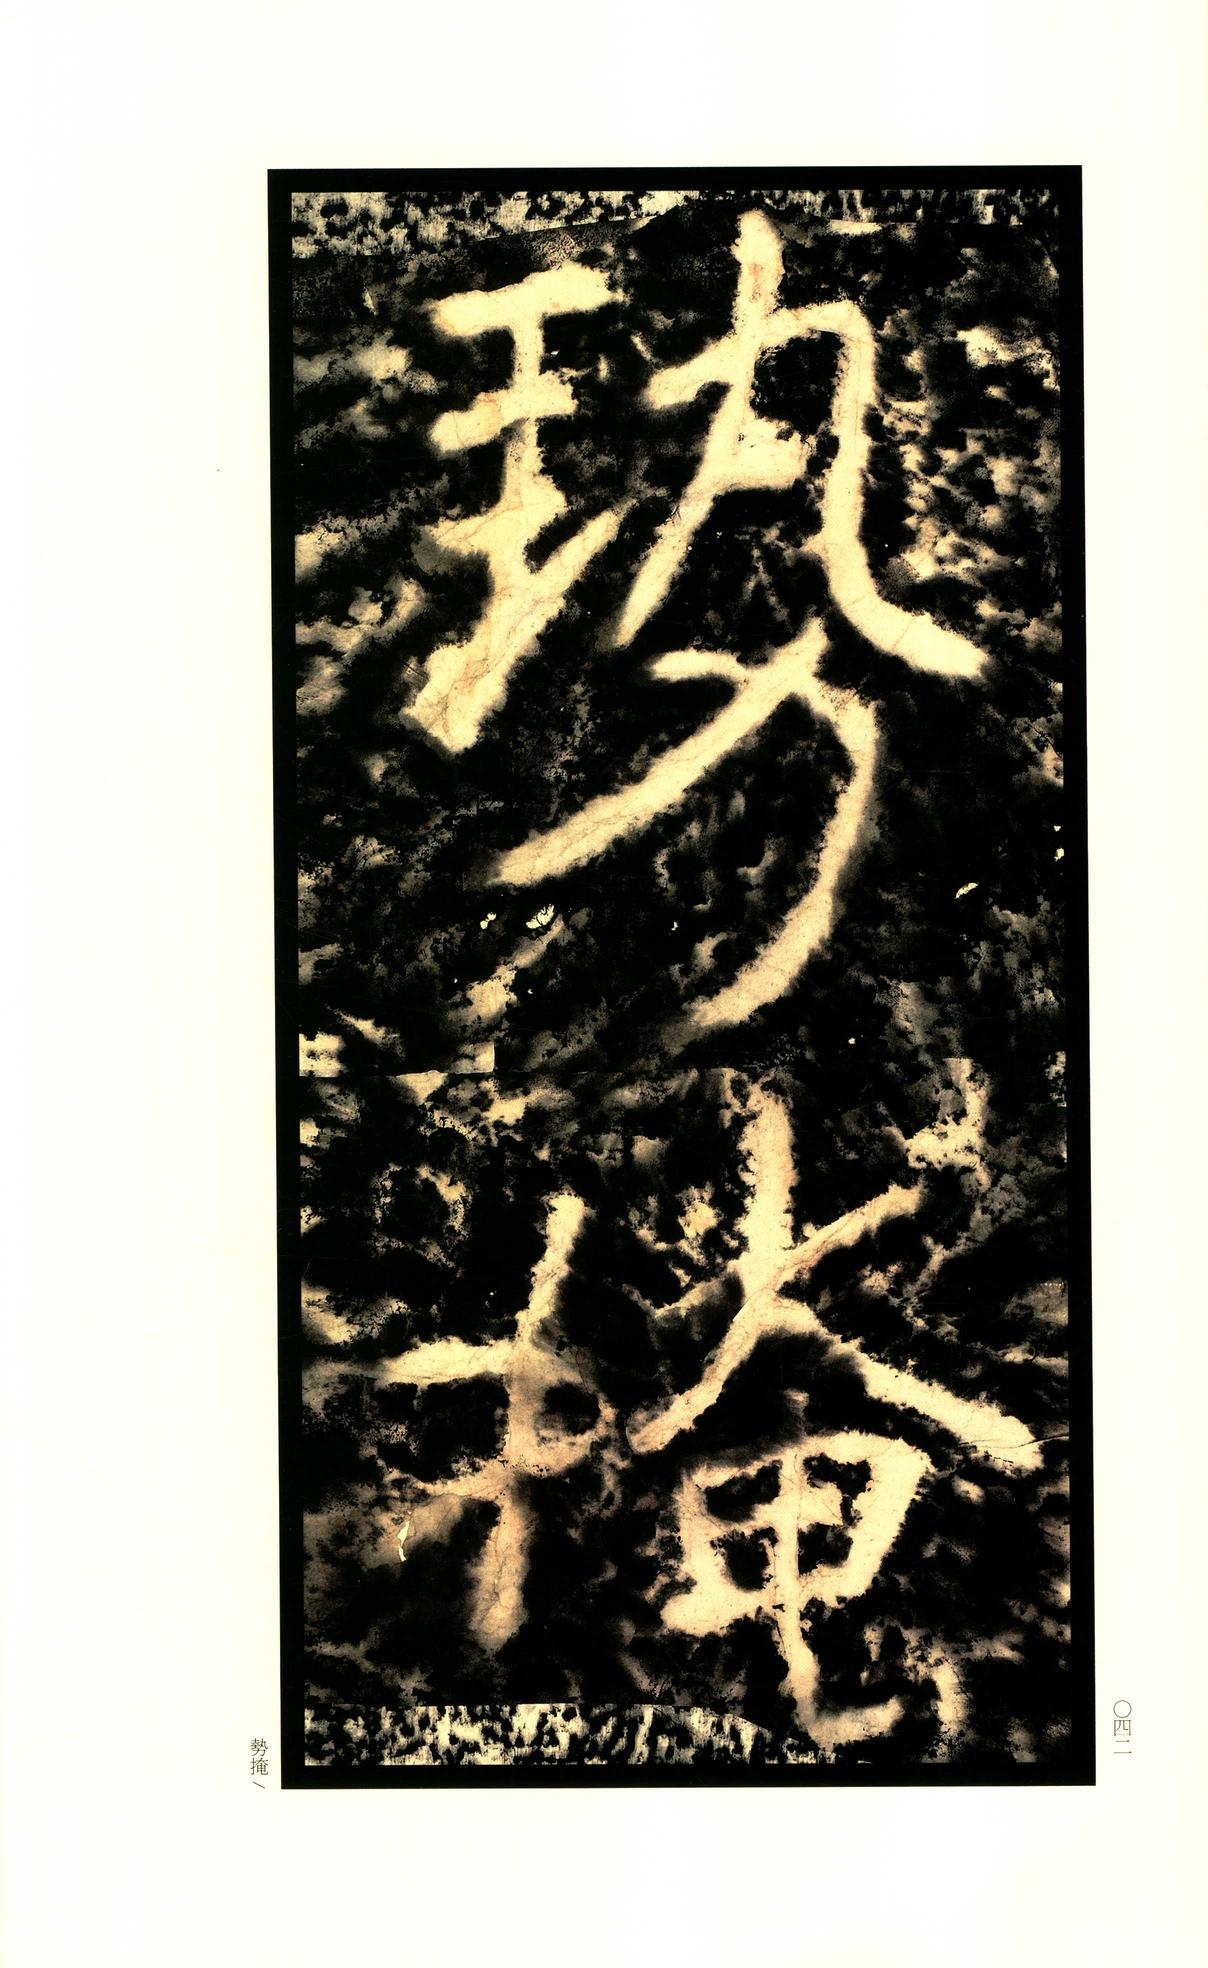 勢掩
勢掩/
〇四二